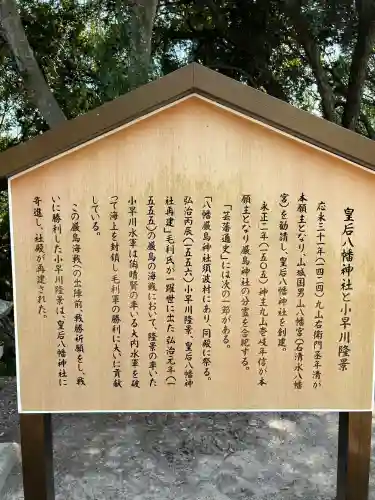 皇后八幡神社と小早川隆景
応永三十一年(一四二四)九山右衛門茎年清が
本願主となり、山城国男山八幡宮(石清水八幡
宮)を勧請し、皇后八幡神社を創建。
永正二年(一五〇五)神主丸山壱岐年信が本
願主となり厳島神社の分霊を合祀する。
「芸藩通史」には次の一節がある。
「八幡厳島神社須波村にあり、同殿に祭る。
弘治丙辰(一五五六)小早川隆景、皇后八幡神
社再建」毛利氏が一躍世に出た弘治元年(一
五五五)の厳島の海戦において、隆景の率いた
小早川水軍は陶晴賢の率いる大内水軍を破
って海上を封鎖し毛利軍の勝利に大いに貢献
している。
この厳島海戦への出陣前、戦勝祈願をし、戦
いに勝利した小早川隆景は、皇后八幡神社に
寄進し、社殿が再建された。